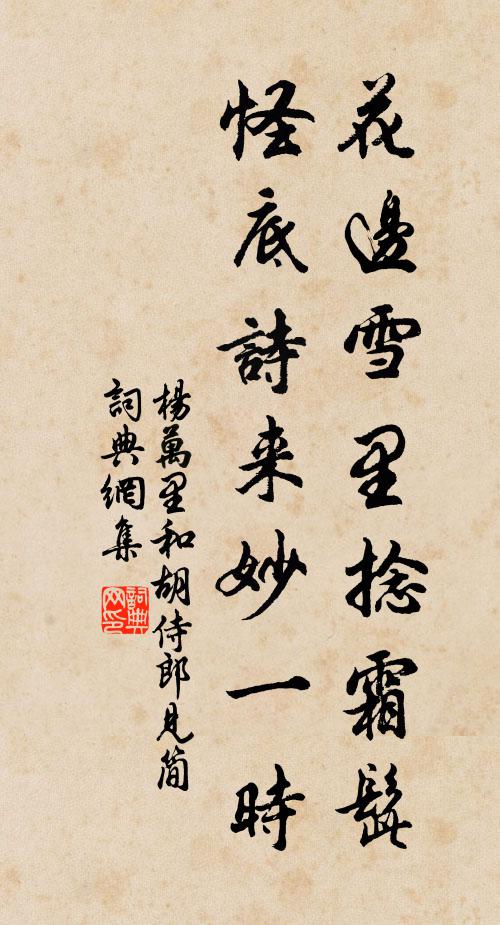 花邊雪里捻霜髭
怪底詩来妙一時
楊萬里和胡侍郎見简
詞典網集
詞典网印